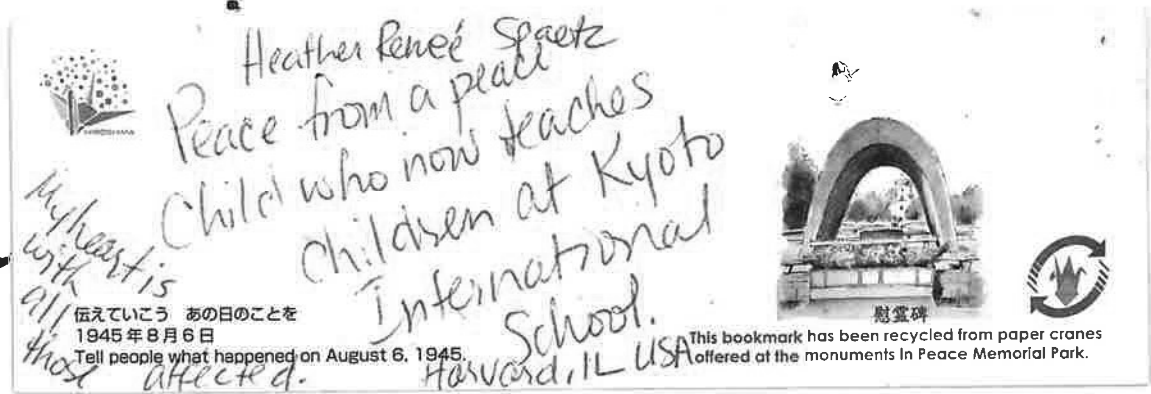 Heather Reneé Spaetz
Peace from a peace
Child who now teaches
children at Kyoto
International
School.
Harvard, IL USA
My heart is
with
all
those affected.
HIROSHIMA
伝えていこう あの日のことを
1945年8月6日
Tell people what happened on August 6, 1945.
慰霊碑
This bookmark has been recycled from paper cranes
offered at the monuments in Peace Memorial Park.